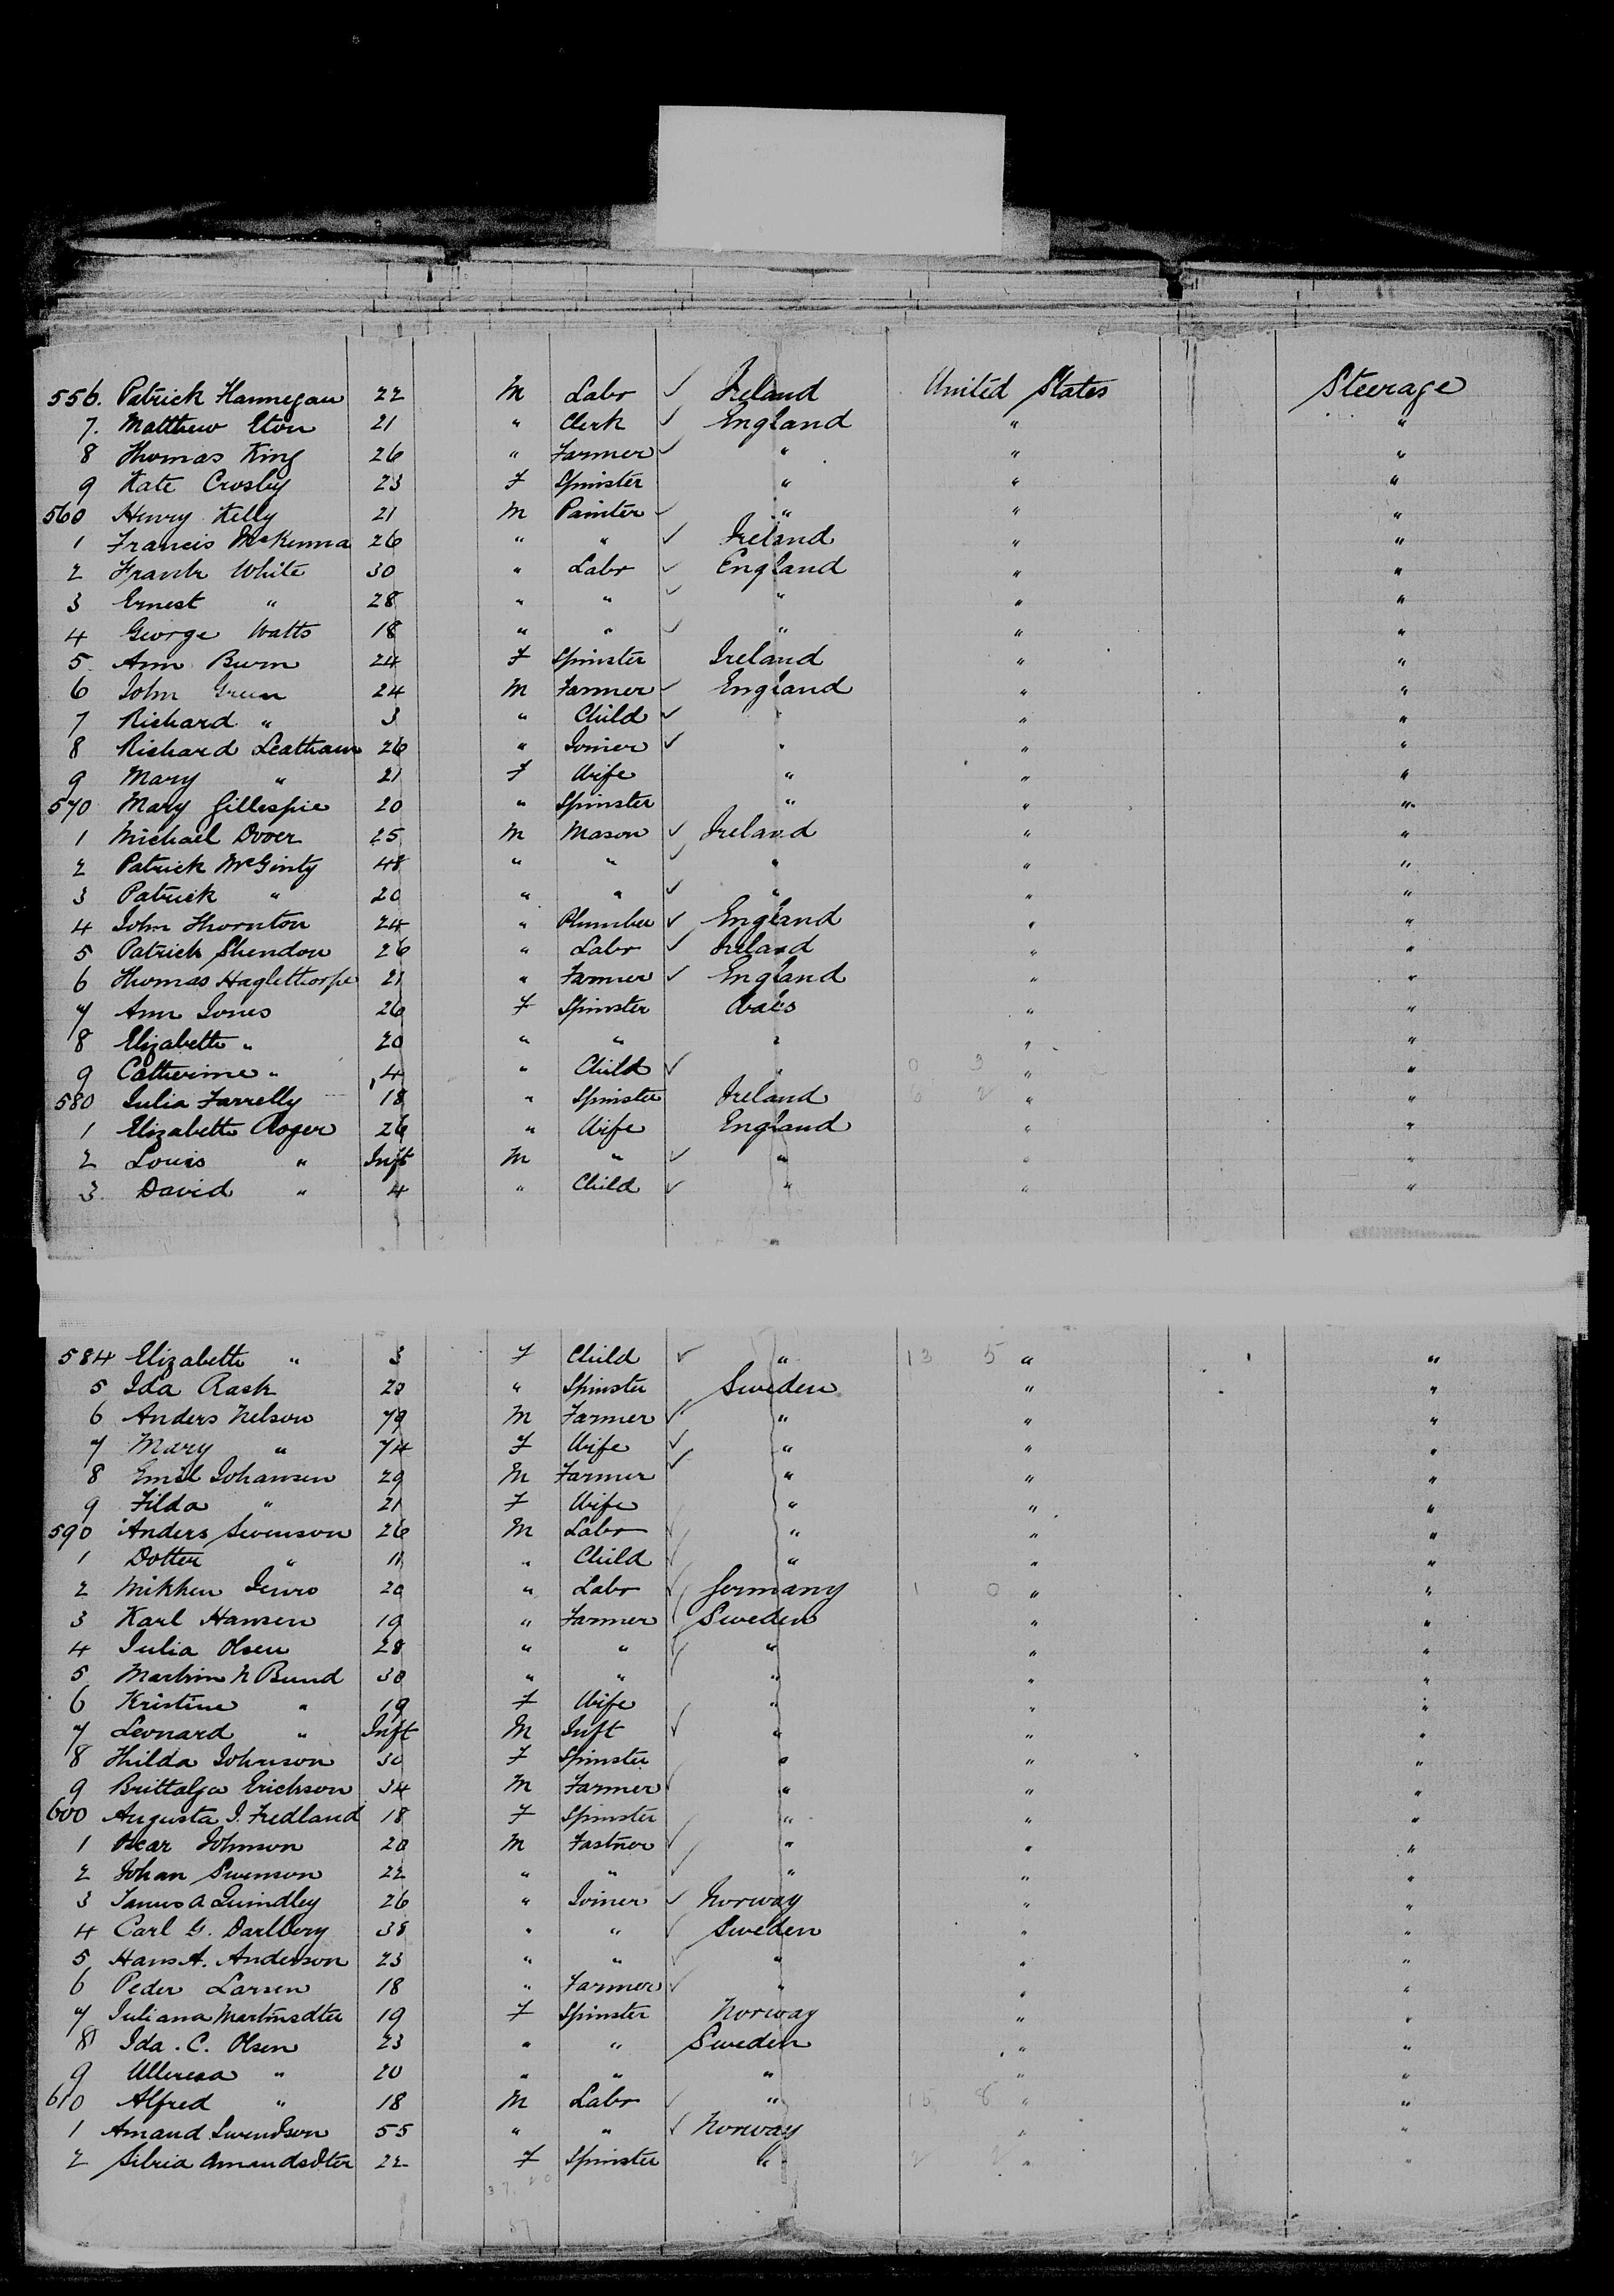 556. Patrick Hannegan 22 M Labr ✓ Ireland United States Steerage
7. Matthew Eton 21 " Clerk ✓ England " "
8 Thomas King 26 " Farmer ✓ " " "
9 Kate Crosby 23 F Spinster " " "
560 Henry Kelly 21 M Painter ✓ " " "
1 Francis McKenna 26 " " ✓ Ireland " "
2 Frank White 30 " Labr ✓ England " "
3 Ernest " 28 " " ✓ " " "
4 George Watts 18 " " ✓ " " "
5. Ann Burn 24 F Spinster Ireland " "
6 John Green 24 M Farmer ✓ England " "
7 Richard " 3 " Child ✓ " " "
8 Richard Leatham 26 " Joiner ✓ " " "
9 Mary " 21 F Wife " " "
570 Mary Gillespie 20 " Spinster " " "
1 Michael Dooer 25 M Mason ✓ Ireland " "
2 Patrick McGinty 48 " " ✓ " " "
3 Patrick " 20 " " ✓ " " "
4 John Thornton 24 " Plumber ✓ England " "
5 Patrick Shendon 26 " Labr ✓ Ireland " "
6 Thomas Haglethorpe 21 " Farmer ✓ England " "
7 Ann Jones 26 F Spinster Wales " "
8 Elizabeth " 20 " " " " "
9 Catherine " 4 " Child ✓ " 0 3 " "
580 Julia Farrelly 18 " Spinster Ireland 6 2 " "
1 Elizabeth Roger 26 " Wife England " "
2 Louis " Inft M " ✓ " " "
3. David " 4 " Child ✓ " " "
584 Elizabeth " 3 F Child ✓ " 13 5 " "
5 Ida Rask 20 " Spinster Sweden " "
6 Anders Nelson 79 M Farmer ✓ " " "
7 Mary " 74 F Wife ✓ " " "
8 Emil Johansen 29 M Farmer ✓ " " "
9 Filda " 21 F Wife " " "
590 Anders Swenson 26 M Labr ✓ " " "
1 Dotter " 11 " Child ✓ " " "
2 Mikken 20 " Labr ✓ Germany 1 0 " "
3 Karl Hansen 19 " Farmer ✓ Sweden " "
4 Julia Olsen 28 " " ✓ " " "
5 N Bund 30 " " ✓ " " "
6 Kristine " 19 F Wife " " "
7 Leonard " Inft M Inft ✓ " " "
8 Hilda Johnson 30 F Spinster " " "
9 Brittalja Erickson 34 M Farmer ✓ " " "
600 Augusta J. Fredland 18 F Spinster " " "
1 Oscar Johnson 20 M ✓ " " "
2 Johan Swenson 22 " " ✓ " " "
3 26 " Joiner ✓ Norway " "
4 Carl G. Darlberg 38 " " ✓ Sweden " "
5 Hans A. Anderson 23 " " ✓ " " "
6 Peder Larsen 18 " Farmer ✓ " " "
7 Juliana Martinsdter 19 F Spinster Norway " "
8 Ida. C. Olsen 23 " " Sweden " "
9 " 20 " " " " "
610 Alfred " 18 M Labr ✓ " 15 8 " "
1 Amand Swendson 55 " " ✓ Norway " "
2 Silvia Amandsdter 22 F Spinster " 2 2 " "
37. 20
57